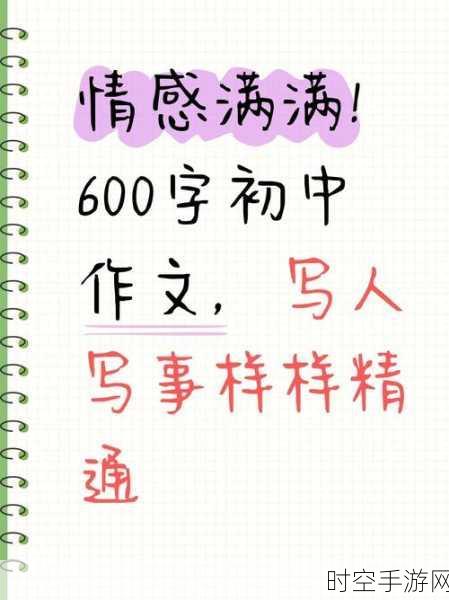 情感满满!
600字初中
作文,写人
写事样样精
通
时空手游网